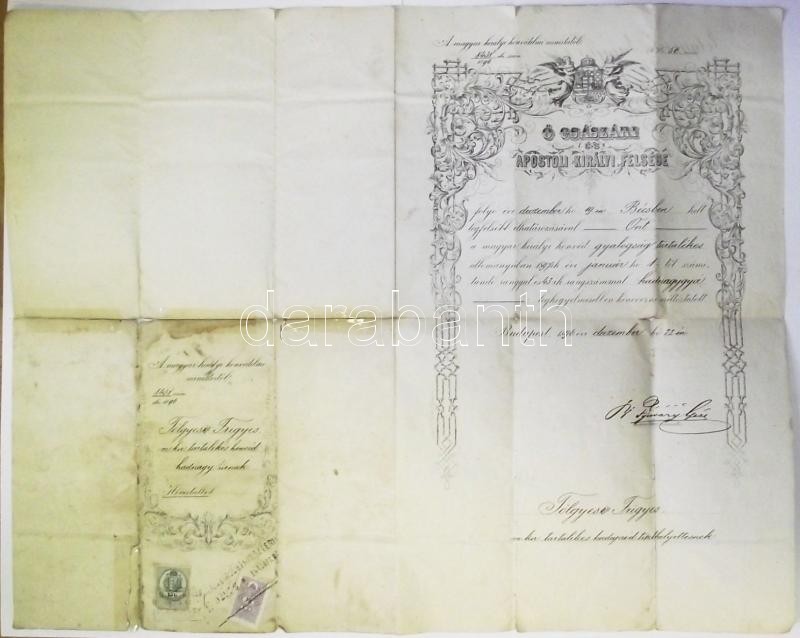 A magyar királyi honvédelmi ministertől.
Ő CSÁSZÁRI
ÉS
APOSTOLI KIRÁLYI FELSÉGE
folyó évi deczember hó 19-én Bécsben kelt
legfelsőbb elhatározásával Önt
a magyar királyi honvéd gyalogság tartalékos
állományában 1897-ik évi január hó 1-től számí-
tandó ranggal és 43-ik rangszámmal hadnagygyá
legkegyelmesebben kinevezni méltóztatott.
Budapest, 1896 évi deczember hó 22-én
Tölgyesy Frigyes
m. kir. tartalékos hadapród tiszthelyettesnek
A magyar királyi honvédelmi
ministertől.
Tölgyesy Frigyes
m. kir. tartalékos honvéd
hadnagy úrnak
darabanth